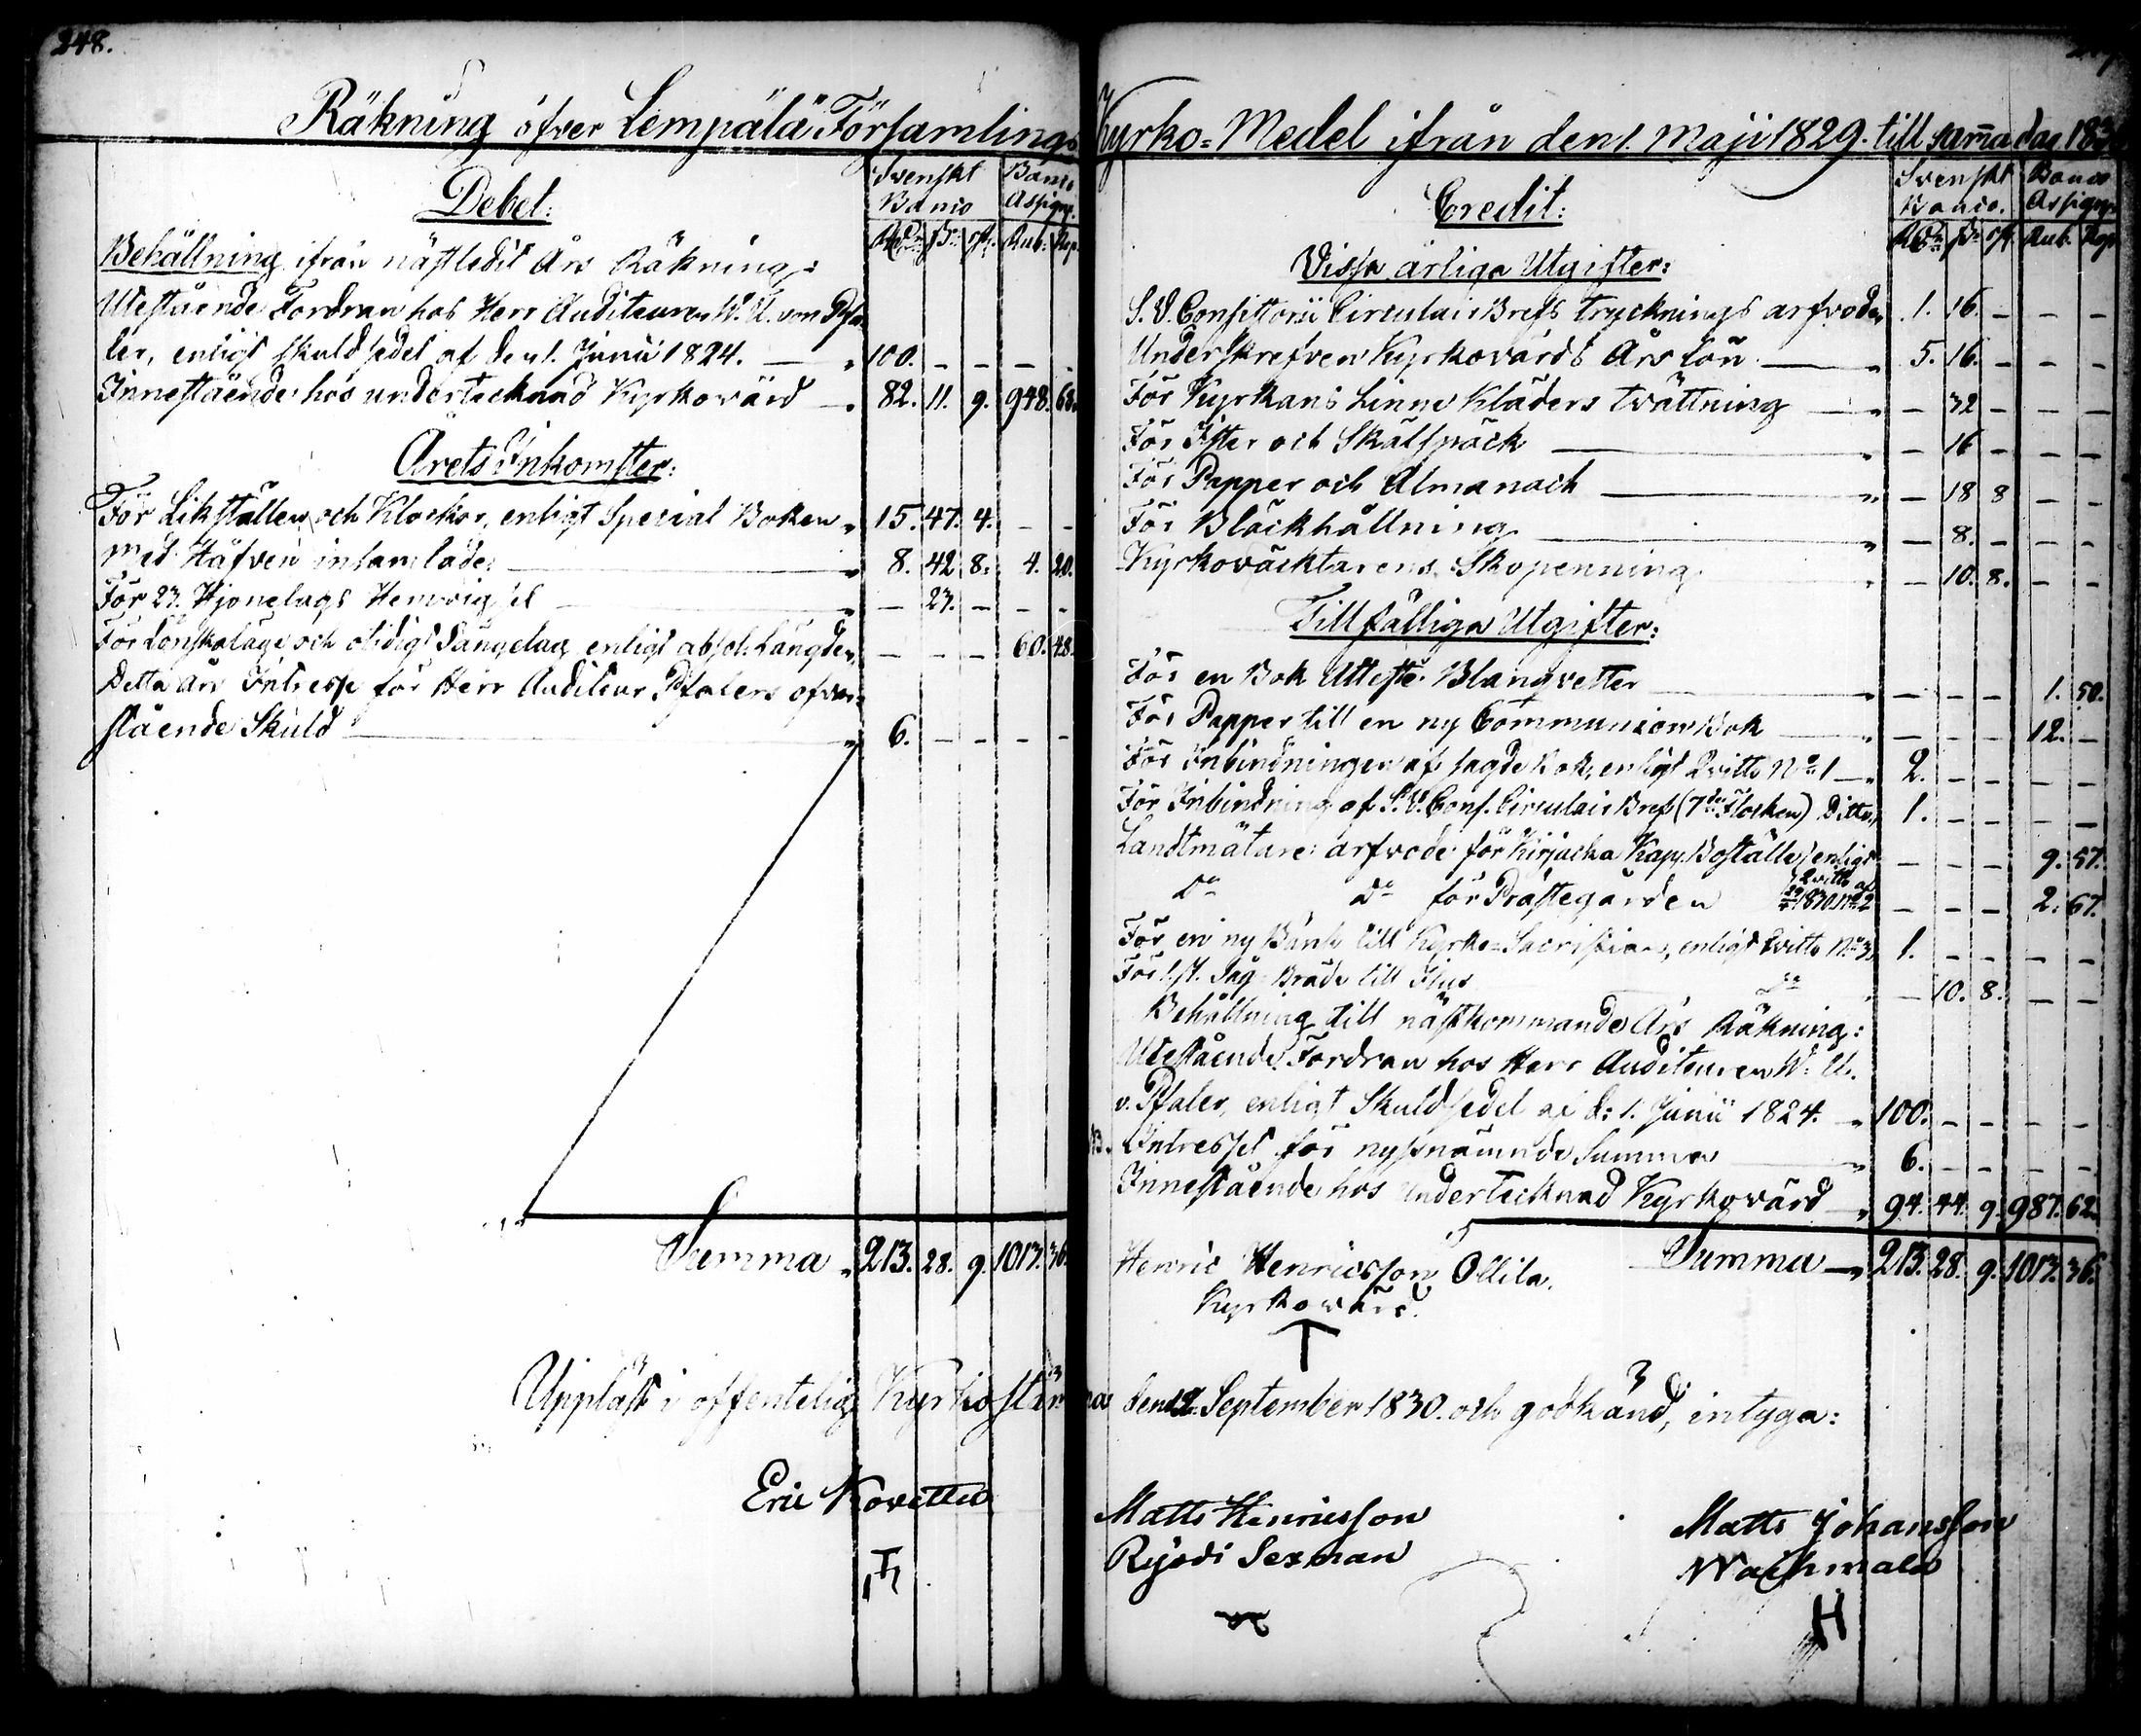 248.
Räkning öfver Lempälä Församlings Kyrko-Medel ifrån den 1. Maji 1829. till samma dag 1830
Debet:
Svenskt Banco
Banco Assign.
Rub: Kop.
Behållning ifrån nästledit Års Räkning:
Utestående Fordran hos Herr Auditeuren W. U. von Pfa-
ler, enligt skuldsedel af den 1. Junii 1824. — 100. – – – –
Innestående hos undertecknad Kyrkovärd — 82. 11. 9. 948. 68.
Årets Inkomster:
För Likställen och Klockor, enligt Special Boken 15. 47. 4. – –
Med Håfven insamlade — 8. 42. 8. 4. 20.
För 23. Hjonelags — 23. – – –
För Lönskaläge och otidigt Sängelag enligt Längden – – – 60. 48.
Detta års Intresse för Herr Auditeur Pfalers ofvan-
stående Skuld — 6. – – – –
Summa 213. 28. 9. 1013. 36.
Credit:
Svenskt Banco.
Banco Assign.
Rub. Kop.
Vissa årliga Utgifter:
S. V. Consistorii Circulair Brefs trycknings arfvode 1. 16. – – –
Underskrefven KyrkovärdsÅrs lön — 5. 16. – – –
För Kyrkans Linne Kläders twättning — – 32 – – –
För Ister och Skälspäck — – 16 – – –
För Papper och Almanach — – 18 8 – –
För Bläckhållning — – 8. – – –
Kyrkoväcktarens Skopenning – 10. 8. – –
Tillfälliga Utgifter:
För en Bok Blanqvetter – – – 1. 50.
För Papper till en ny Communion Bok — – – – 12. –
För Inbindningen af sagde Bok, enligt Qvitto No 1 — 2. – – – –
För Inbindning af S. V. Cons. Circulair Bref (7de Flocken) Ditto 1. – – – –
Landtmätare arfvode för Kirjacka Kapp. Boställe, enligt – – – 9. 57.
Do Do för Prästegården Qvitto af 1830. No 2 – – – 2. 67.
För en ny Bänk till Kyrko-Sacristian, enligt Qvitto No 3. 1. – – – –
För 1. st. Såg Bräde till do – 10. 8. – –
Behållning till nästkommande Års Räkning:
Utestående Fordran hos Herr Auditeuren W. U.
v. Pfaler, enligt Skuldsedel af d: 1. Junii 1824. — 100. – – – –
Intresset för nyssnämnde Summa — 6. – – – –
Innestående hos undertecknad Kyrkovärd 94. 44. 9. 987. 62.
Summa — 213. 28. 9. 1013. 36.
Henric Henricsson Ollila.
Kyrkovärd.
Uppläst i offentelig Kyrkostämma den 12 September 1830. och godkänd, intyga:
Eric
Matts Henricsson
Ryödi Sexman
Matts Johansson
H